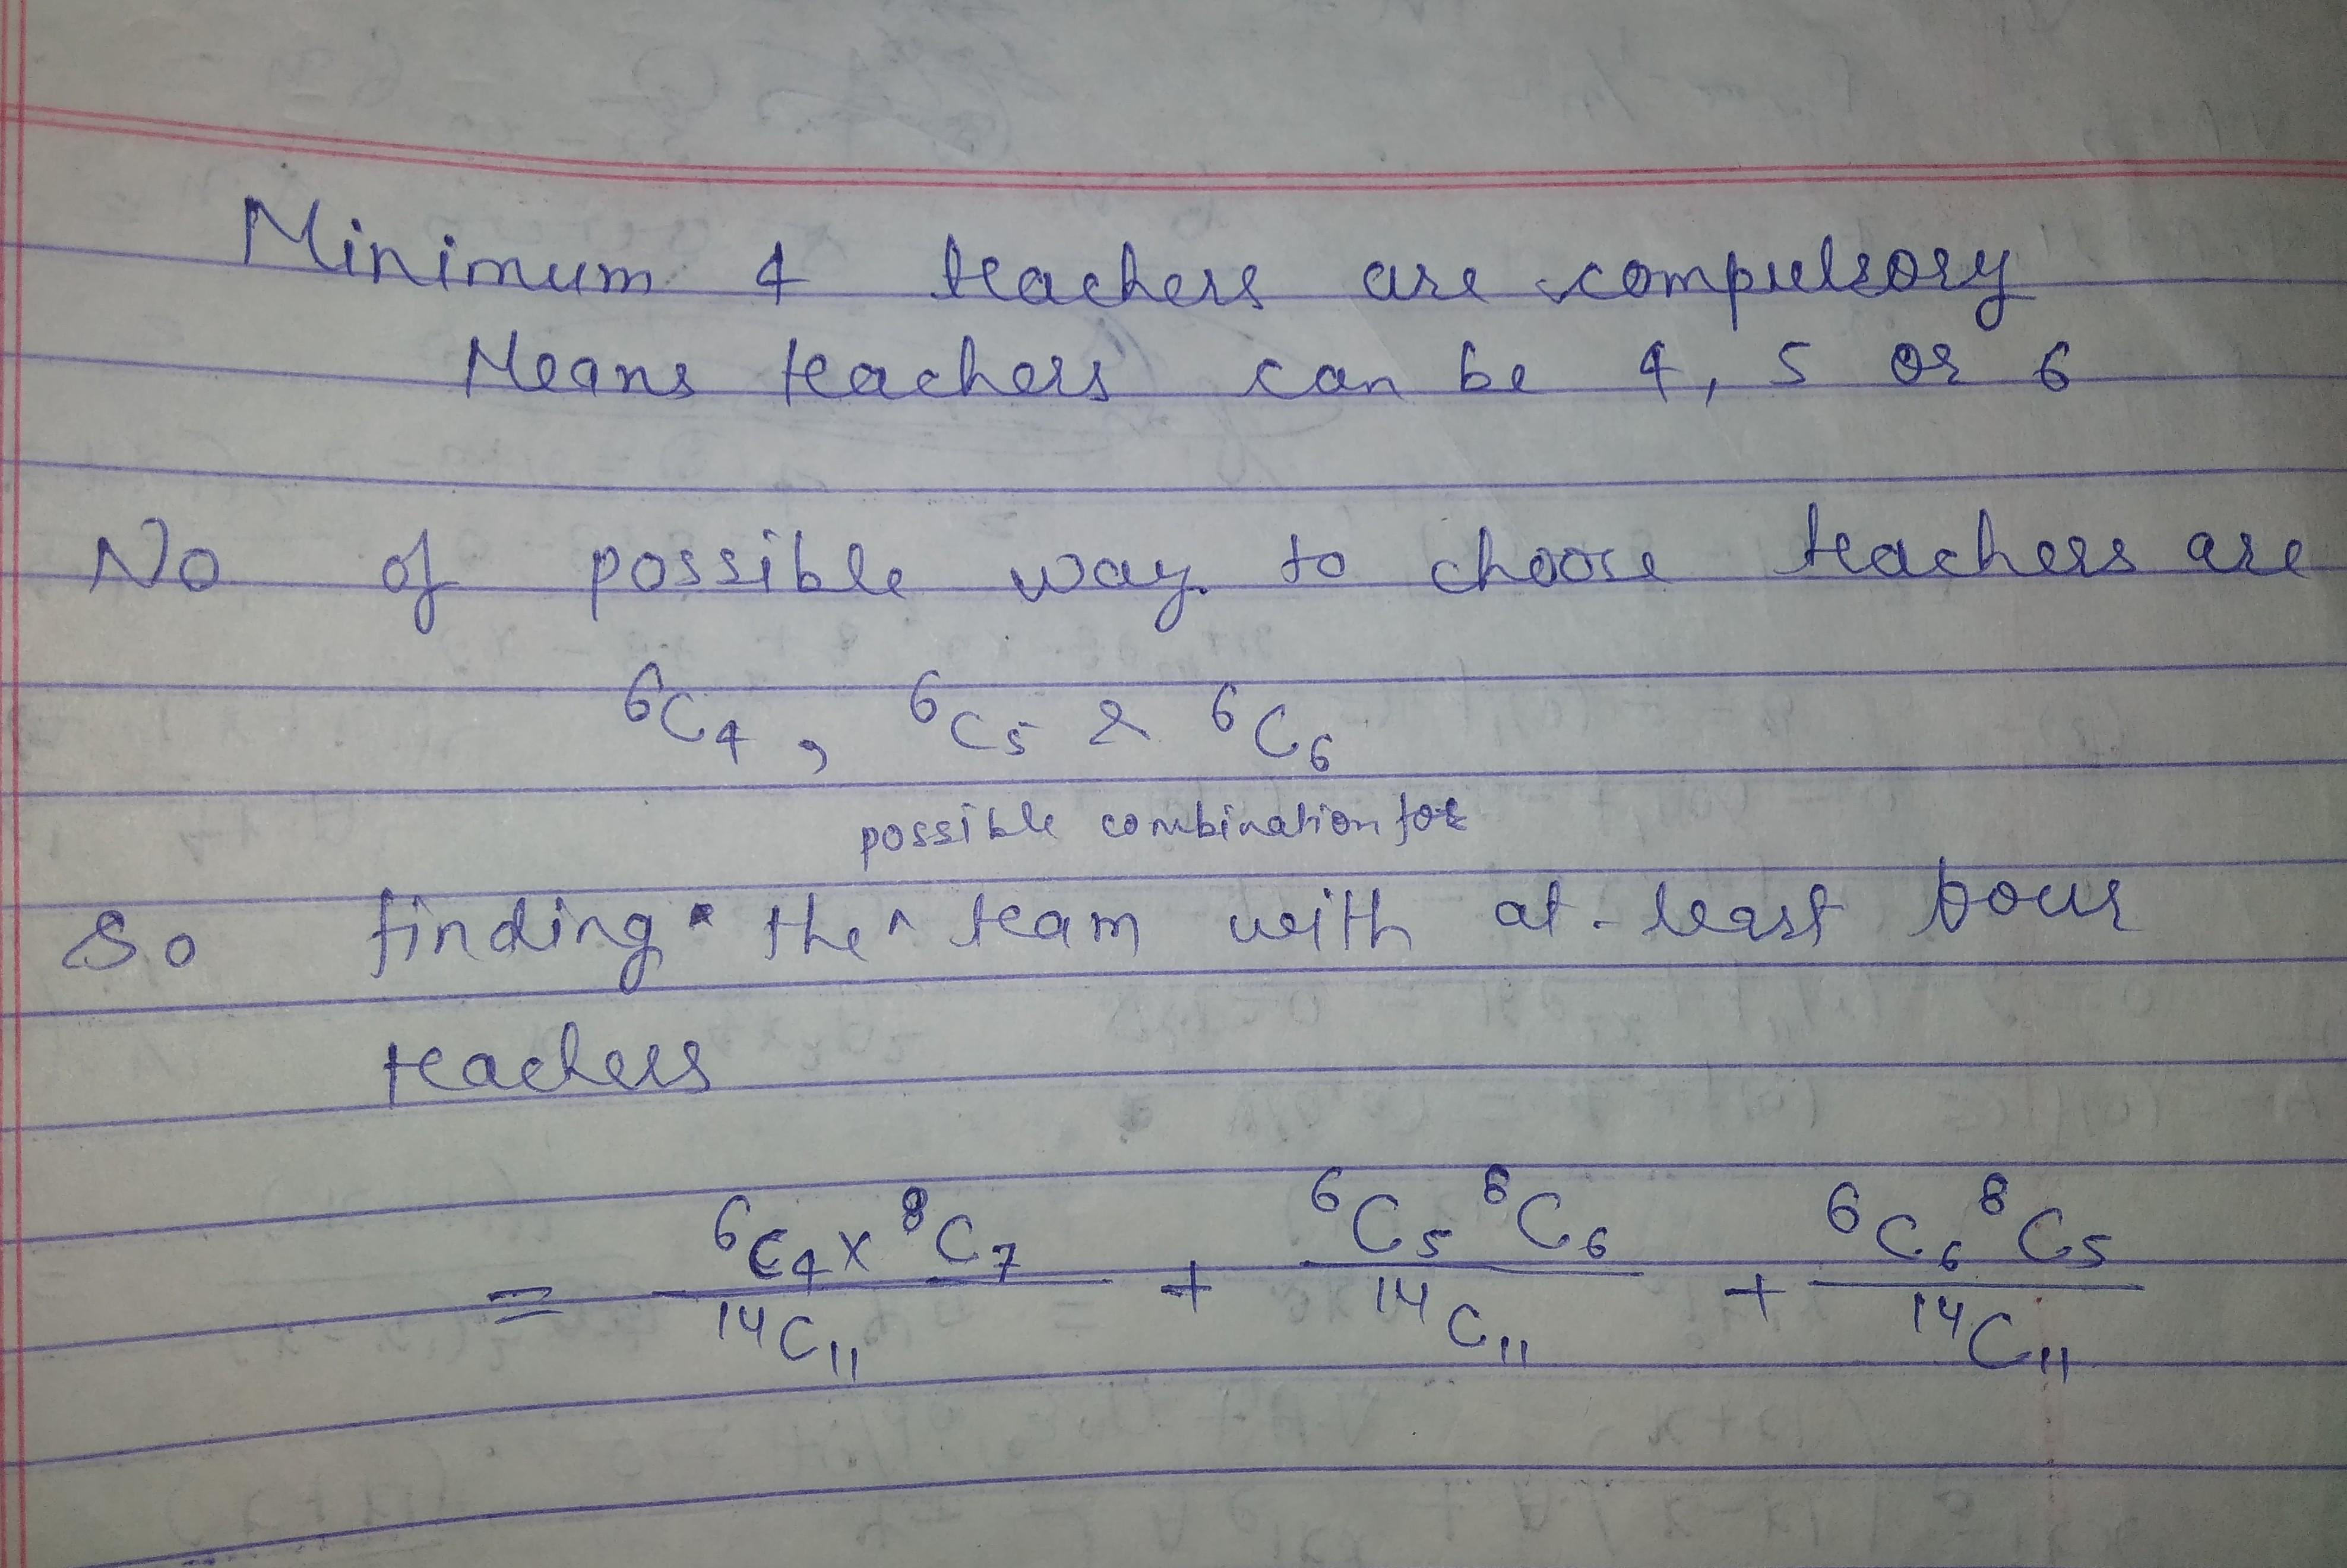 Minimum 4 teachers are compulsory
Means teachers can be 4, 5 or 6
No of possible way to choose teachers are
⁶C₄ , ⁶C₅ & ⁶C₆
possible combination for
So finding the ^ team with at-least four
teachers
= (⁶C₄ x ⁸C₇)/¹⁴C₁₁ + (⁶C₅ ⁸C₆)/¹⁴C₁₁ + (⁶C₆ ⁸C₅)/¹⁴C₁₁